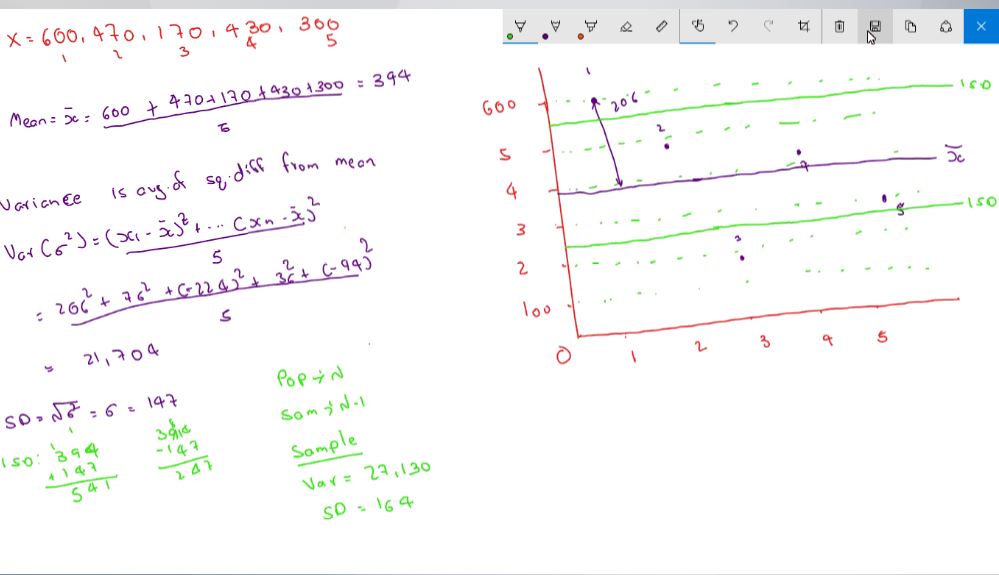 X = 600, 470, 170, 430, 300
1 2 3 4 5
Mean = x̄ = 600 + 470 + 170 + 430 + 300 = 394
5
Variance is avg. of sq. diff from mean
Var (σ²) = (x₁ - x̄)² + ... (xn - x̄)²
5
= 206² + 76² + (-224)² + 36² + (-94)²
5
= 21,704
SD = √σ² = σ = 147
1SD: 394
+147
541
394
-147
247
Pop → N
Sam → N-1
Sample
Var = 27,130
SD = 164
1
600
206
1SD
2
5
x̄
4
4
5
1SD
3
3
2
100
0 1 2 3 4 5